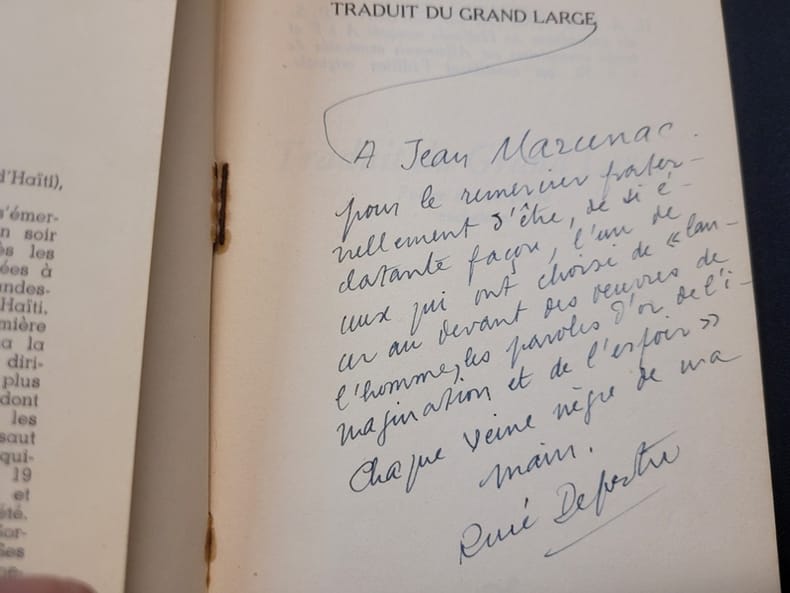 d'Haïti),
s'émer-
n soir
ès les
ées à
andes-
Haïti.
mière
a la
diri-
plus
dont
les
saut
qui-
19
et
été.
Sor-
Ses
TRADUIT DU GRAND LARGE
A Jean Marcenac
pour le remercier frater-
nellement d'être, de si é-
clatante façon, l'un de
ceux qui ont choisi de « lan-
cer au devant des oeuvres de
l'homme, les paroles d'or de l'i-
magination et de l'espoir »
Chaque veine nègre de ma
main.
René Depestre